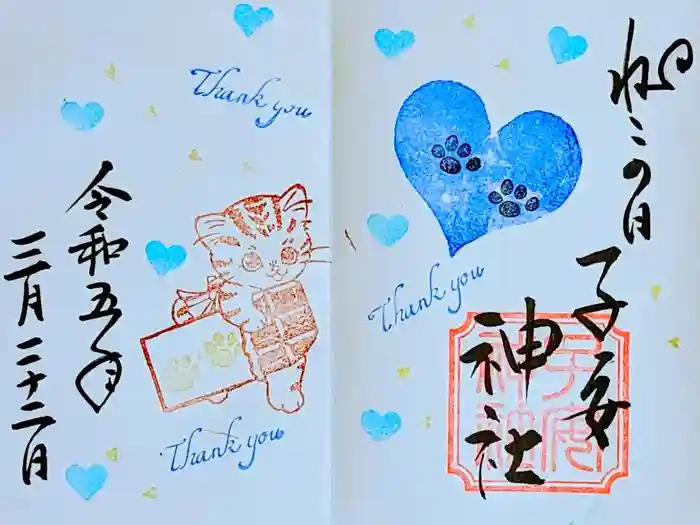 ねこの日
子安
神社
子安
神社
Thank you
Thank you
令和五年
三月二十二日
Thank you